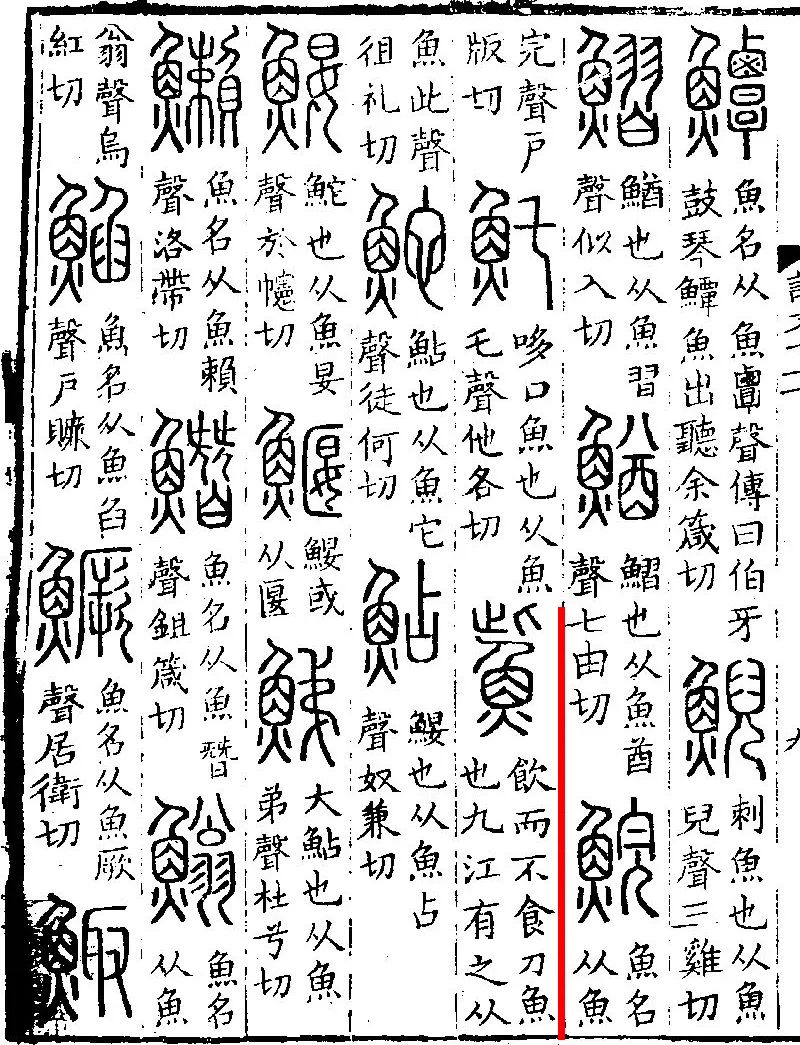 鱏魚名从魚覃聲傳曰伯牙鼓琴鱏魚出聽余箴切鯢刺魚也从魚兒聲三雞切
鰼鰌也从魚習聲似入切鰌鰼也从魚酋聲七由切鯇魚名从魚
完聲戶版切魠哆口魚也从魚乇聲他各切鮆飲而不食刀魚也九江有之从
魚此聲徂礼切鮀鮎也从魚它聲徒何切鮎鰋也从魚占聲奴兼切
鮀也从魚妟聲於幰切鰋或从匽鮷大鮎也从魚弟聲杜兮切
鱱魚名从魚賴聲洛帶切䲋魚名从魚朁聲鉏箴切䱵魚名从魚
翁聲烏紅切䱤魚名从魚臽聲戶賺切鱖魚名从魚厥聲居衛切鯫